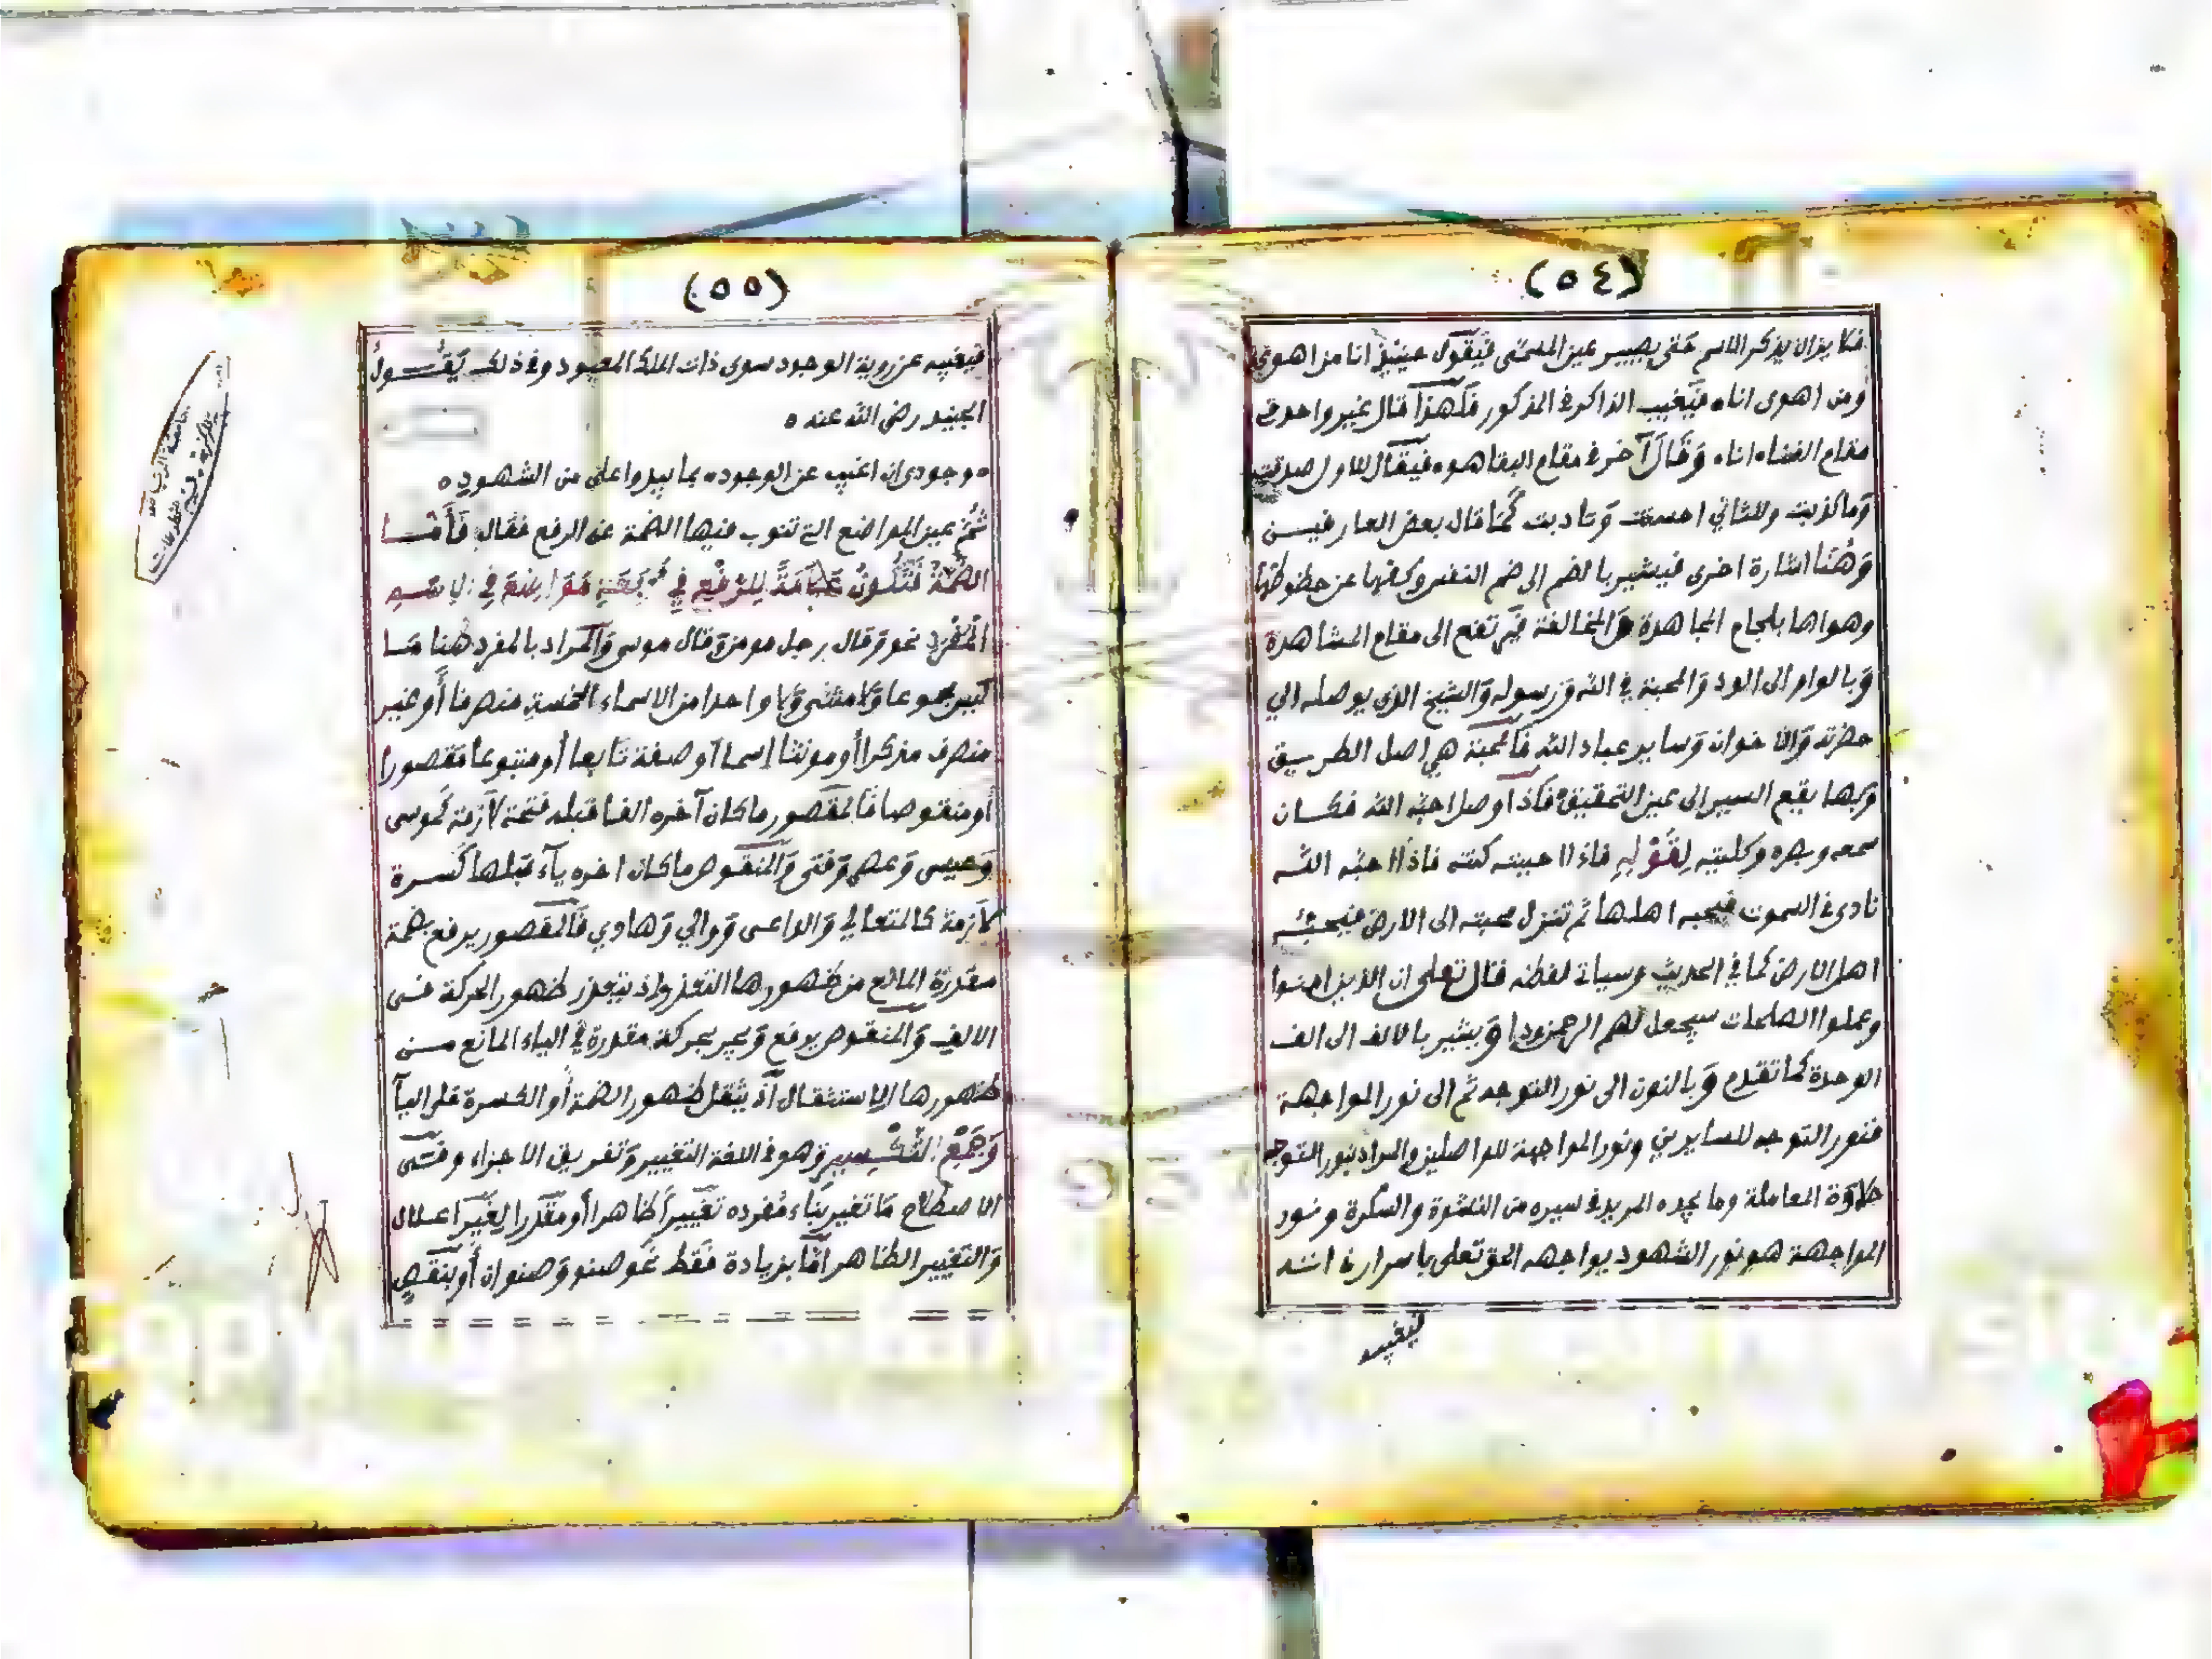 (٥٤)
فلا يزال يذكر الاسم حتى يصير عين المسمى فيقول حينئذ انا من اهوى
ومن اهوى اناه فيغيب الذاكر في المذكور فلهذا قال غير واحد في
مقام الفناء اناه وقال آخر في مقام البقا هوه فيقال للاول صدقت
وما كذبت وللثاني احسنت وتادبت كما قال بعض العارفين
وهنا اشارة اخرى فيشير بالضم الى ضم النفس وكفها عن حظوظها
وهواها بلجام المجاهدة والمخالفة فيرتفع الى مقام المشاهدة
وبالواو الى الود والمحبة في الله ورسوله والشيخ الذي يوصله الي
حضرته والاخوان وساير عباد الله فالمحبة هي اصل الطريق
وبها يقع السير الى عين التحقيق فاذا وصل احبه الله فكان
سمعه وبصره وكليته لقوله فاذا احببته كنته فاذا احبه الله
نادى في السموت فيحبه اهلها ثم تنزل محبته الى الارض فيحبه
اهل الارض كما في الحديث وسياتي لفظه قال تعلى ان الذين امنوا
وعملوا الصلحات سيجعل لهم الرحمن ودا ويشير بالالف الى الف
الوحدة كما تقدم وبالنون الى نور التوجه ثم الى نور المواجهة
فنور التوجه للسايرين ونور المواجهة للواصلين والمراد بنور التوجه
حلاوة المعاملة وما يجده المريد في سيره من النشوة والسكرة ونور
المواجهة هو نور الشهود يواجهه الحق تعلى باسرار ذاته
فيغيبه
(٥٥)
فيغيبه عن روية الوجود سوى ذات الملك المعبود وفي ذلك يقول
الجنيد رضي الله عنه ه
ه وجودي ان اغيب عن الوجود ه بما يبدوا علي من الشهود ه
ثم عين المواضع التي تنوب فيها الضمة عن الرفع فقال فأما
الضمة فتكون علامة للرفع في أربعة مواضع في الاسم
المفرد نحو وقال رجل مومن وقال موسى والمراد بالمفرد هنا ما
ليس مجموعا ولا مثنى ولا واحدا من الاسماء الخمسة منصرفا أو غير
منصرف مذكرا أو مونثا إسما أو صفة تابعا أو متبوعا مقصورا
أو منقوصا فالمقصور ما كان آخره الفا قبله فتحة لازمة كموسى
وعيسى وعصى وفتى والمنقوص ما كان اخره ياء قبلها كسرة
لازمة كالمتعالي والداعى ووالي وهادي فالمقصور يرفع بضمة
مقدرة المانع من ظهورها التعذر إذ يتعذر ظهور الحركة في
الالف والمنقوص يرفع ويجر بحركة مقدرة في الياء المانع من
ظهورها الاستثقال اذ يثقل ظهور الضمة أو الكسرة على اليآ
وجمع التكسير وهو في اللغة التغيير وتفريق الاجزاء وفي
الاصطلاح ما تغير بناء مفرده تغييراً ظاهرا أو مقدرا لغير اعلال
والتغيير الظاهر اما بزيادة فقط نحو صنو وصنوان أو بنقص